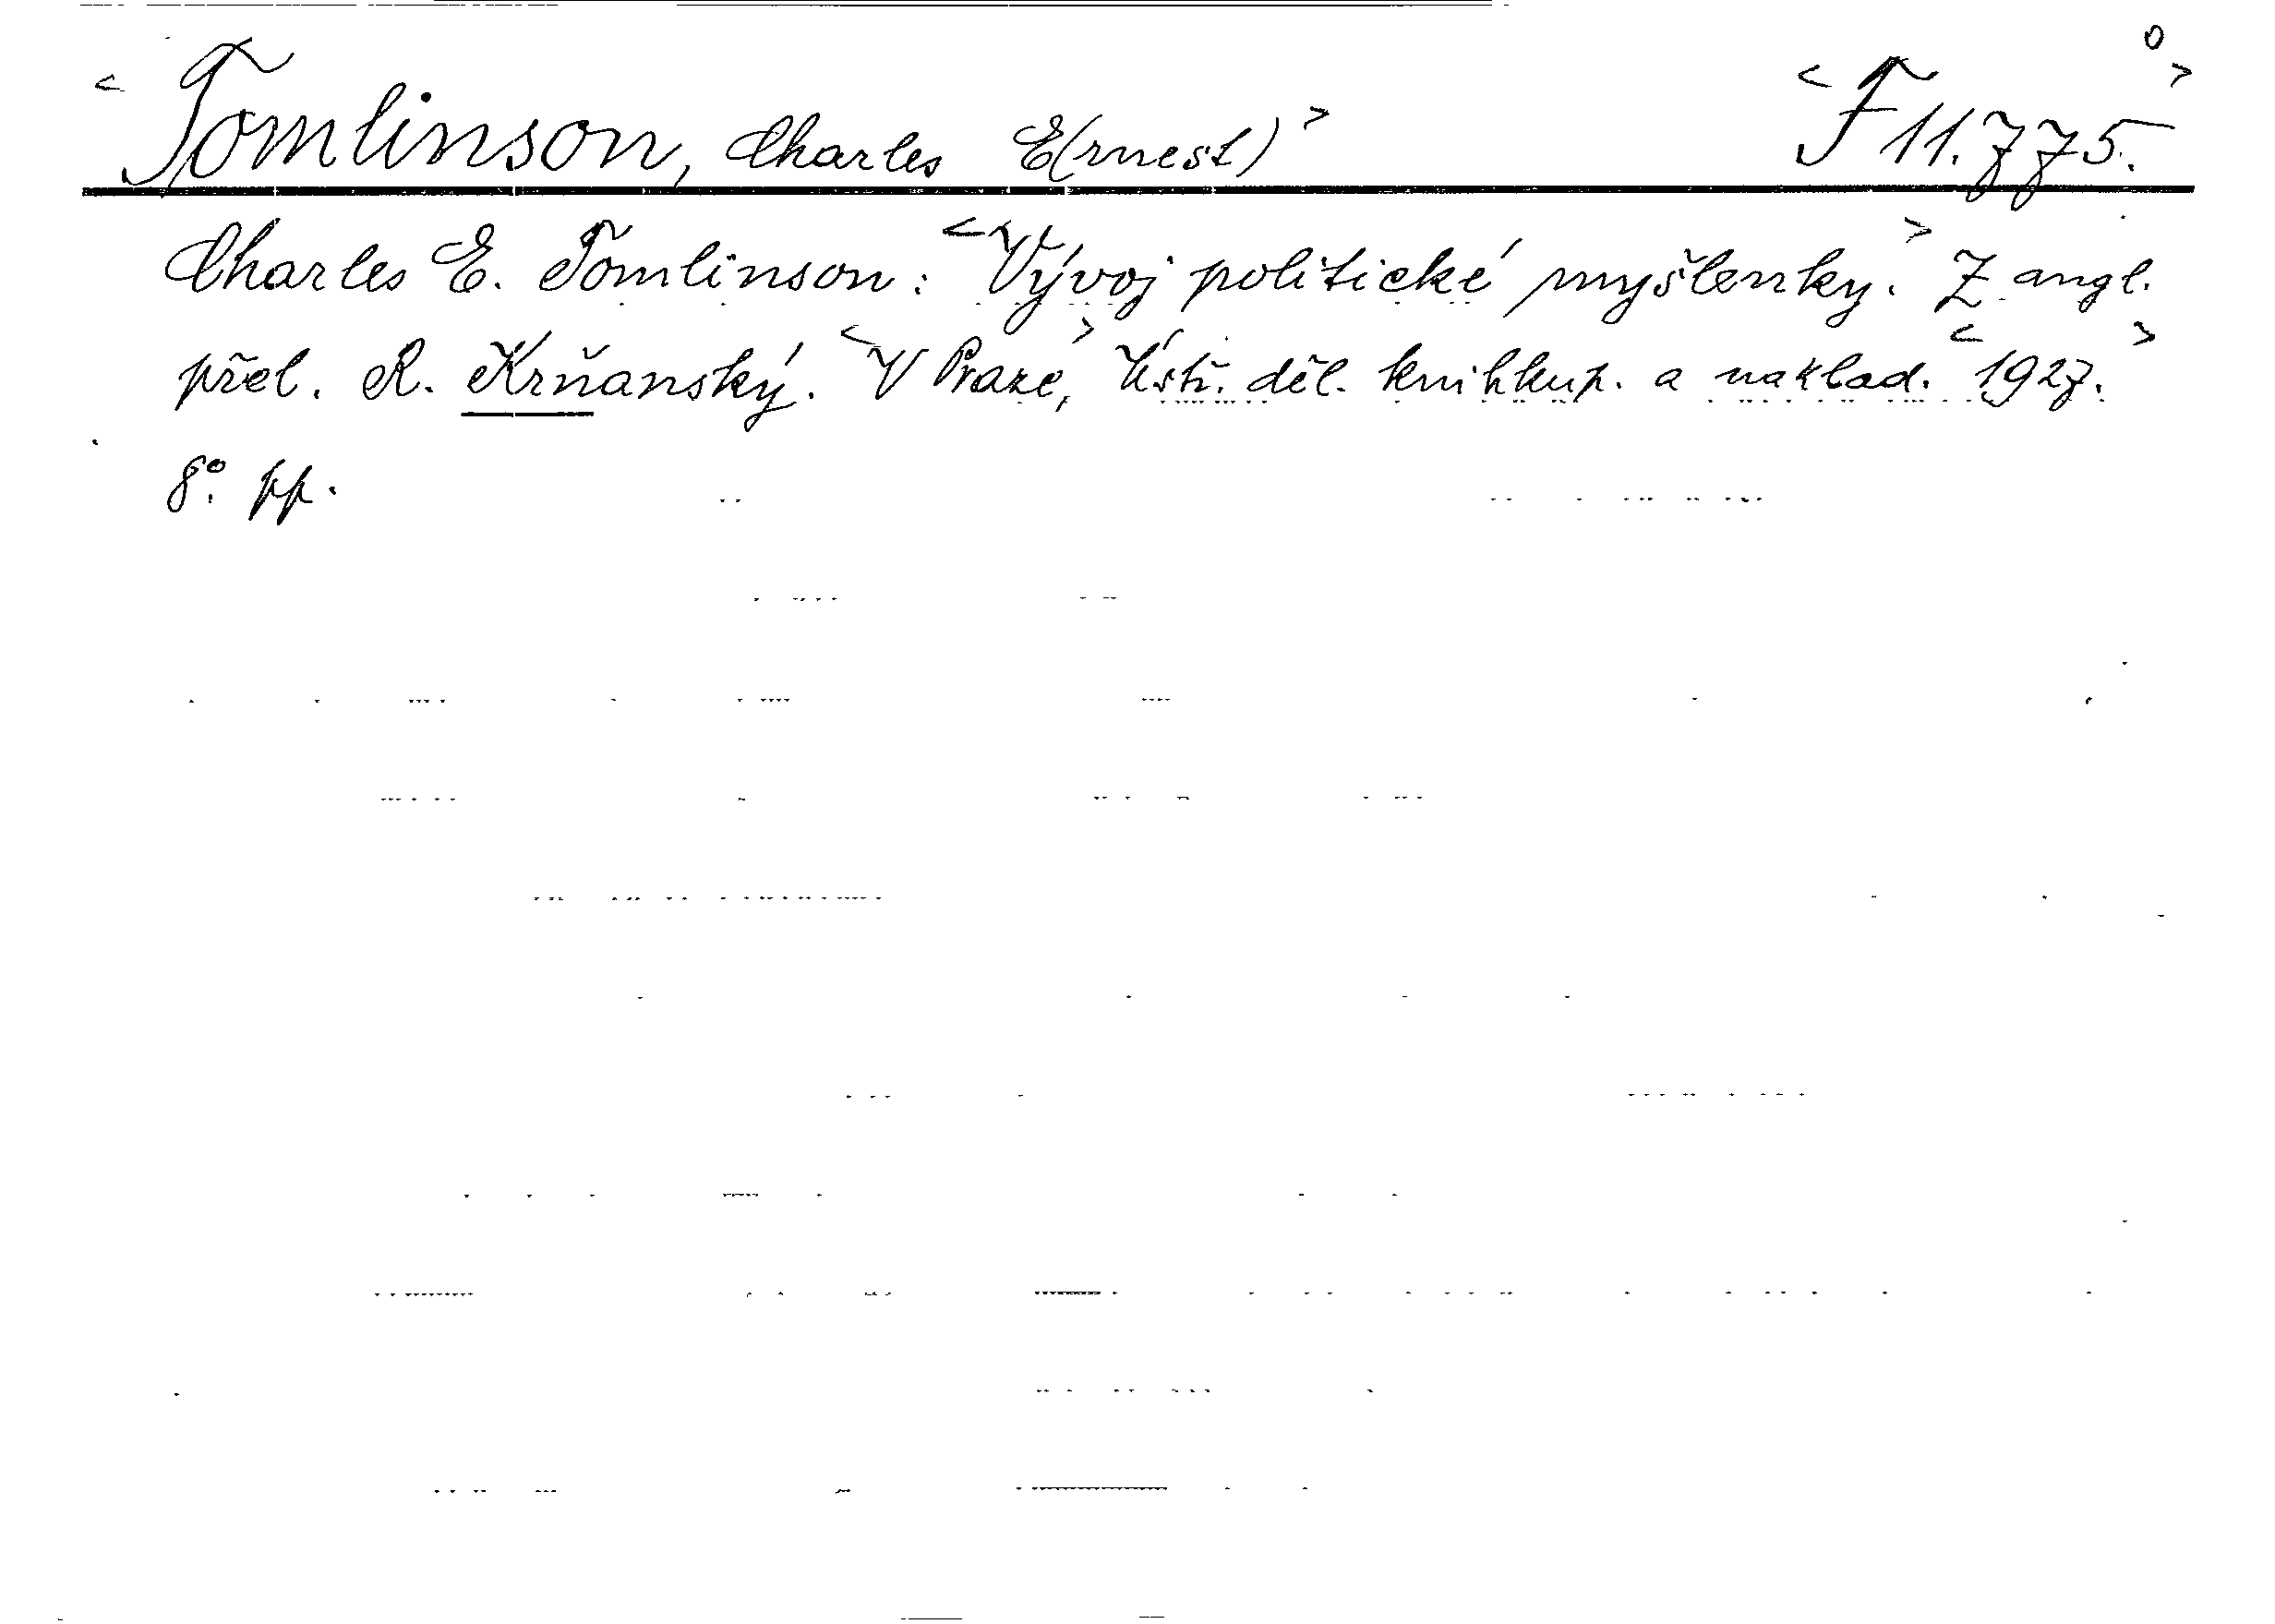 < Tomlinson, Charles E(rnest) > < F 11.775. o >
Charles E. Tomlinson: < Vývoj politické myšlenky. > Z angl.
přel. R. Krňanský. < V Praze, > Ústř. děl. knihkup. a naklad. < 1927. >
8°. pp.